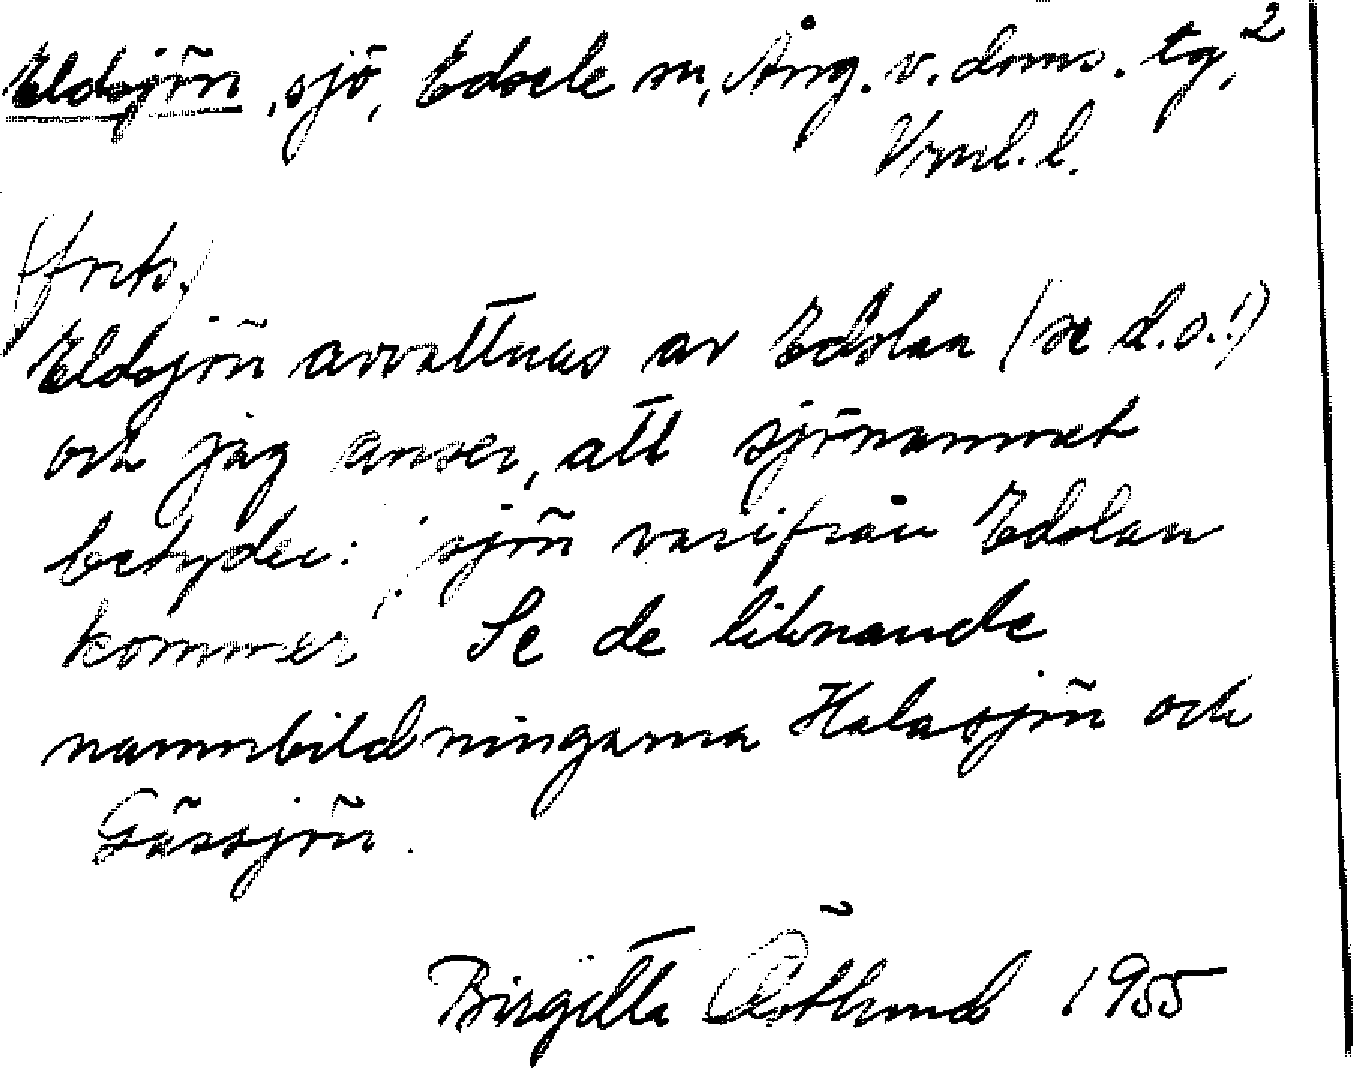 Eldsjön, sjö, Edsele sn, Ång. v. doms. tg, 2
Vrnl. l.
(forts.)
Eldsjön avvattnas av Edslan (se d.o.!)
och jag anser, att sjönamnet
betyder: 'sjön varifrån Edslan
kommer' Se de liknande
namnbildningarna Halasjön och
Gässjön.
Birgitta Östlund 1955